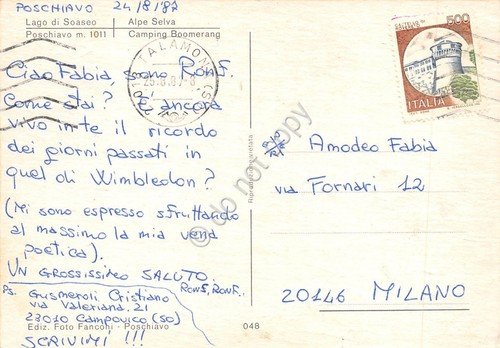 POSCHIAVO 24/8/'87
Lago di Soaseo
Poschiavo m. 1011
Alpe Selva
Camping Boomerang
Ciao Fabia, sono RonS.
Come stai? È ancora
vivo in te il ricordo
dei giorni passati in
quel di Wimbledon?
(Mi sono espresso sfruttando
al massimo la mia vena
poetica).
UN GROSSISSIMO SALUTO.
RonS, RonF.
PS. Gusmeroli Cristiano
via Valeriana, 21
23010 CAMPOVICO (SO)
SCRIVIMI !!!
Ediz. Foto Fanconi - Poschiavo
048
Riproduzione vietata
TALAMONA (SO)
500
ITALIA
Amodeo Fabia
via Fornari 12
20146 MILANO
do not copy